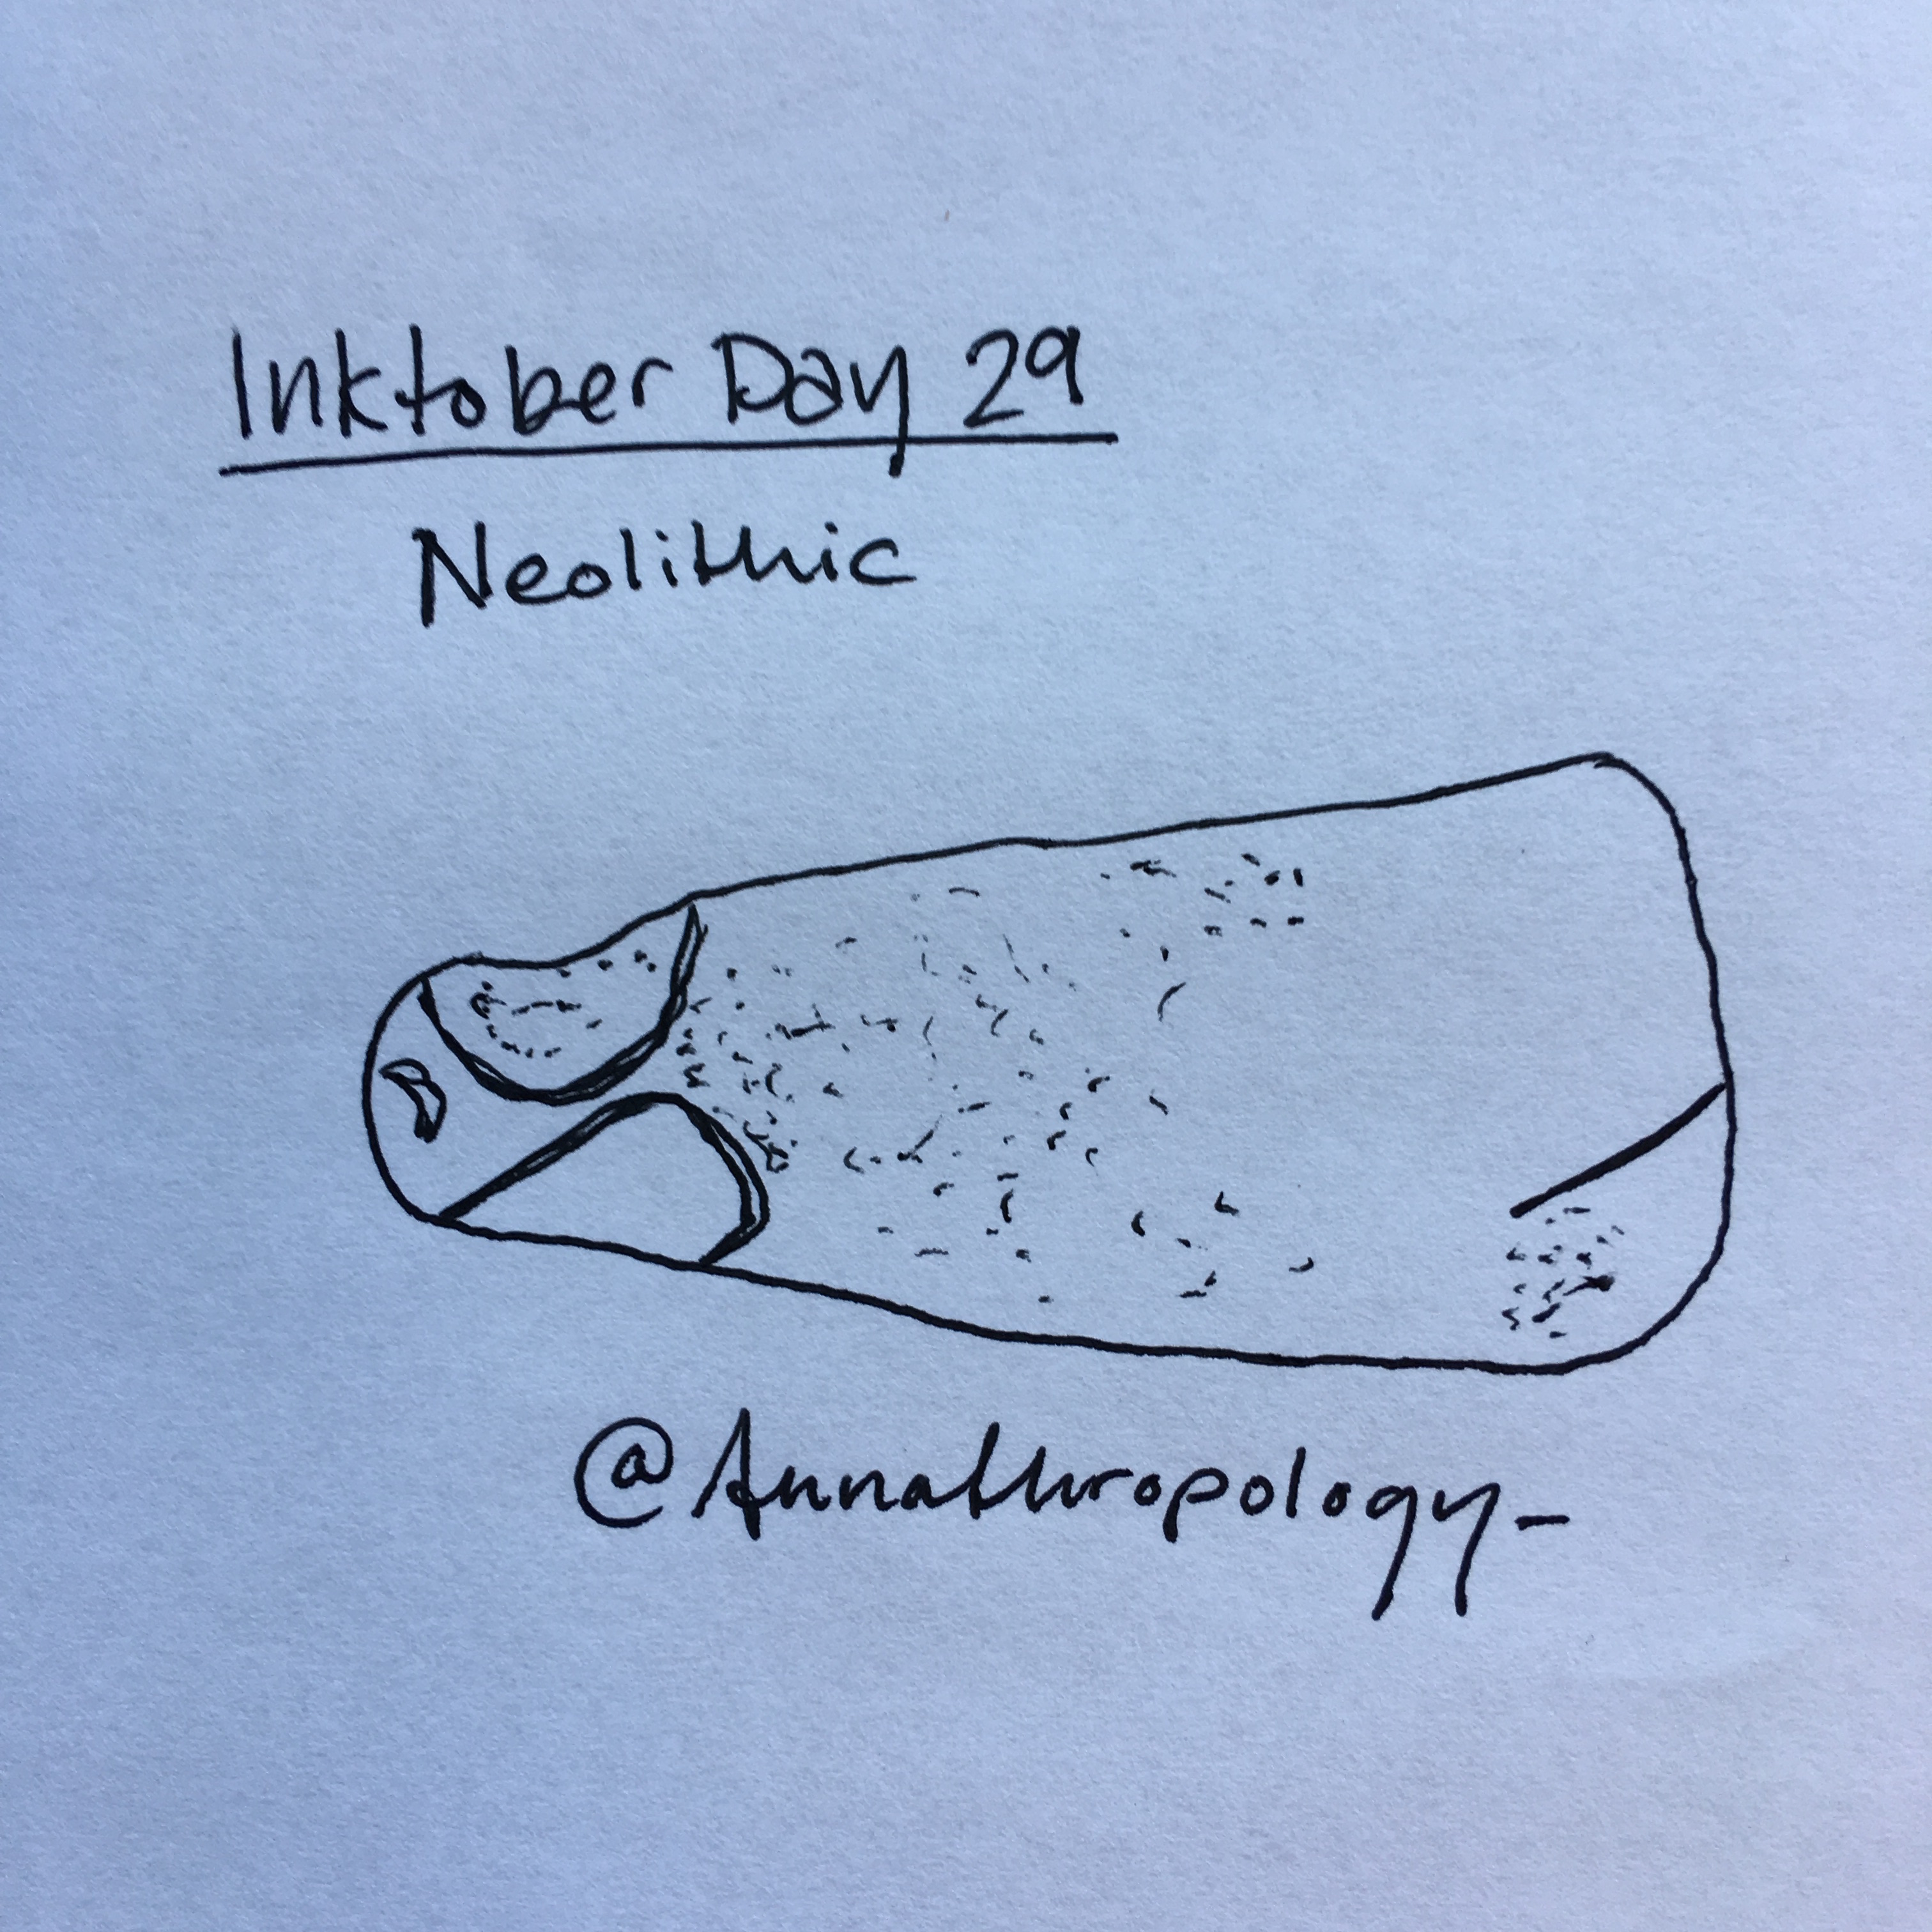 Inktober Day 29
Neolithic
@Annathropology_